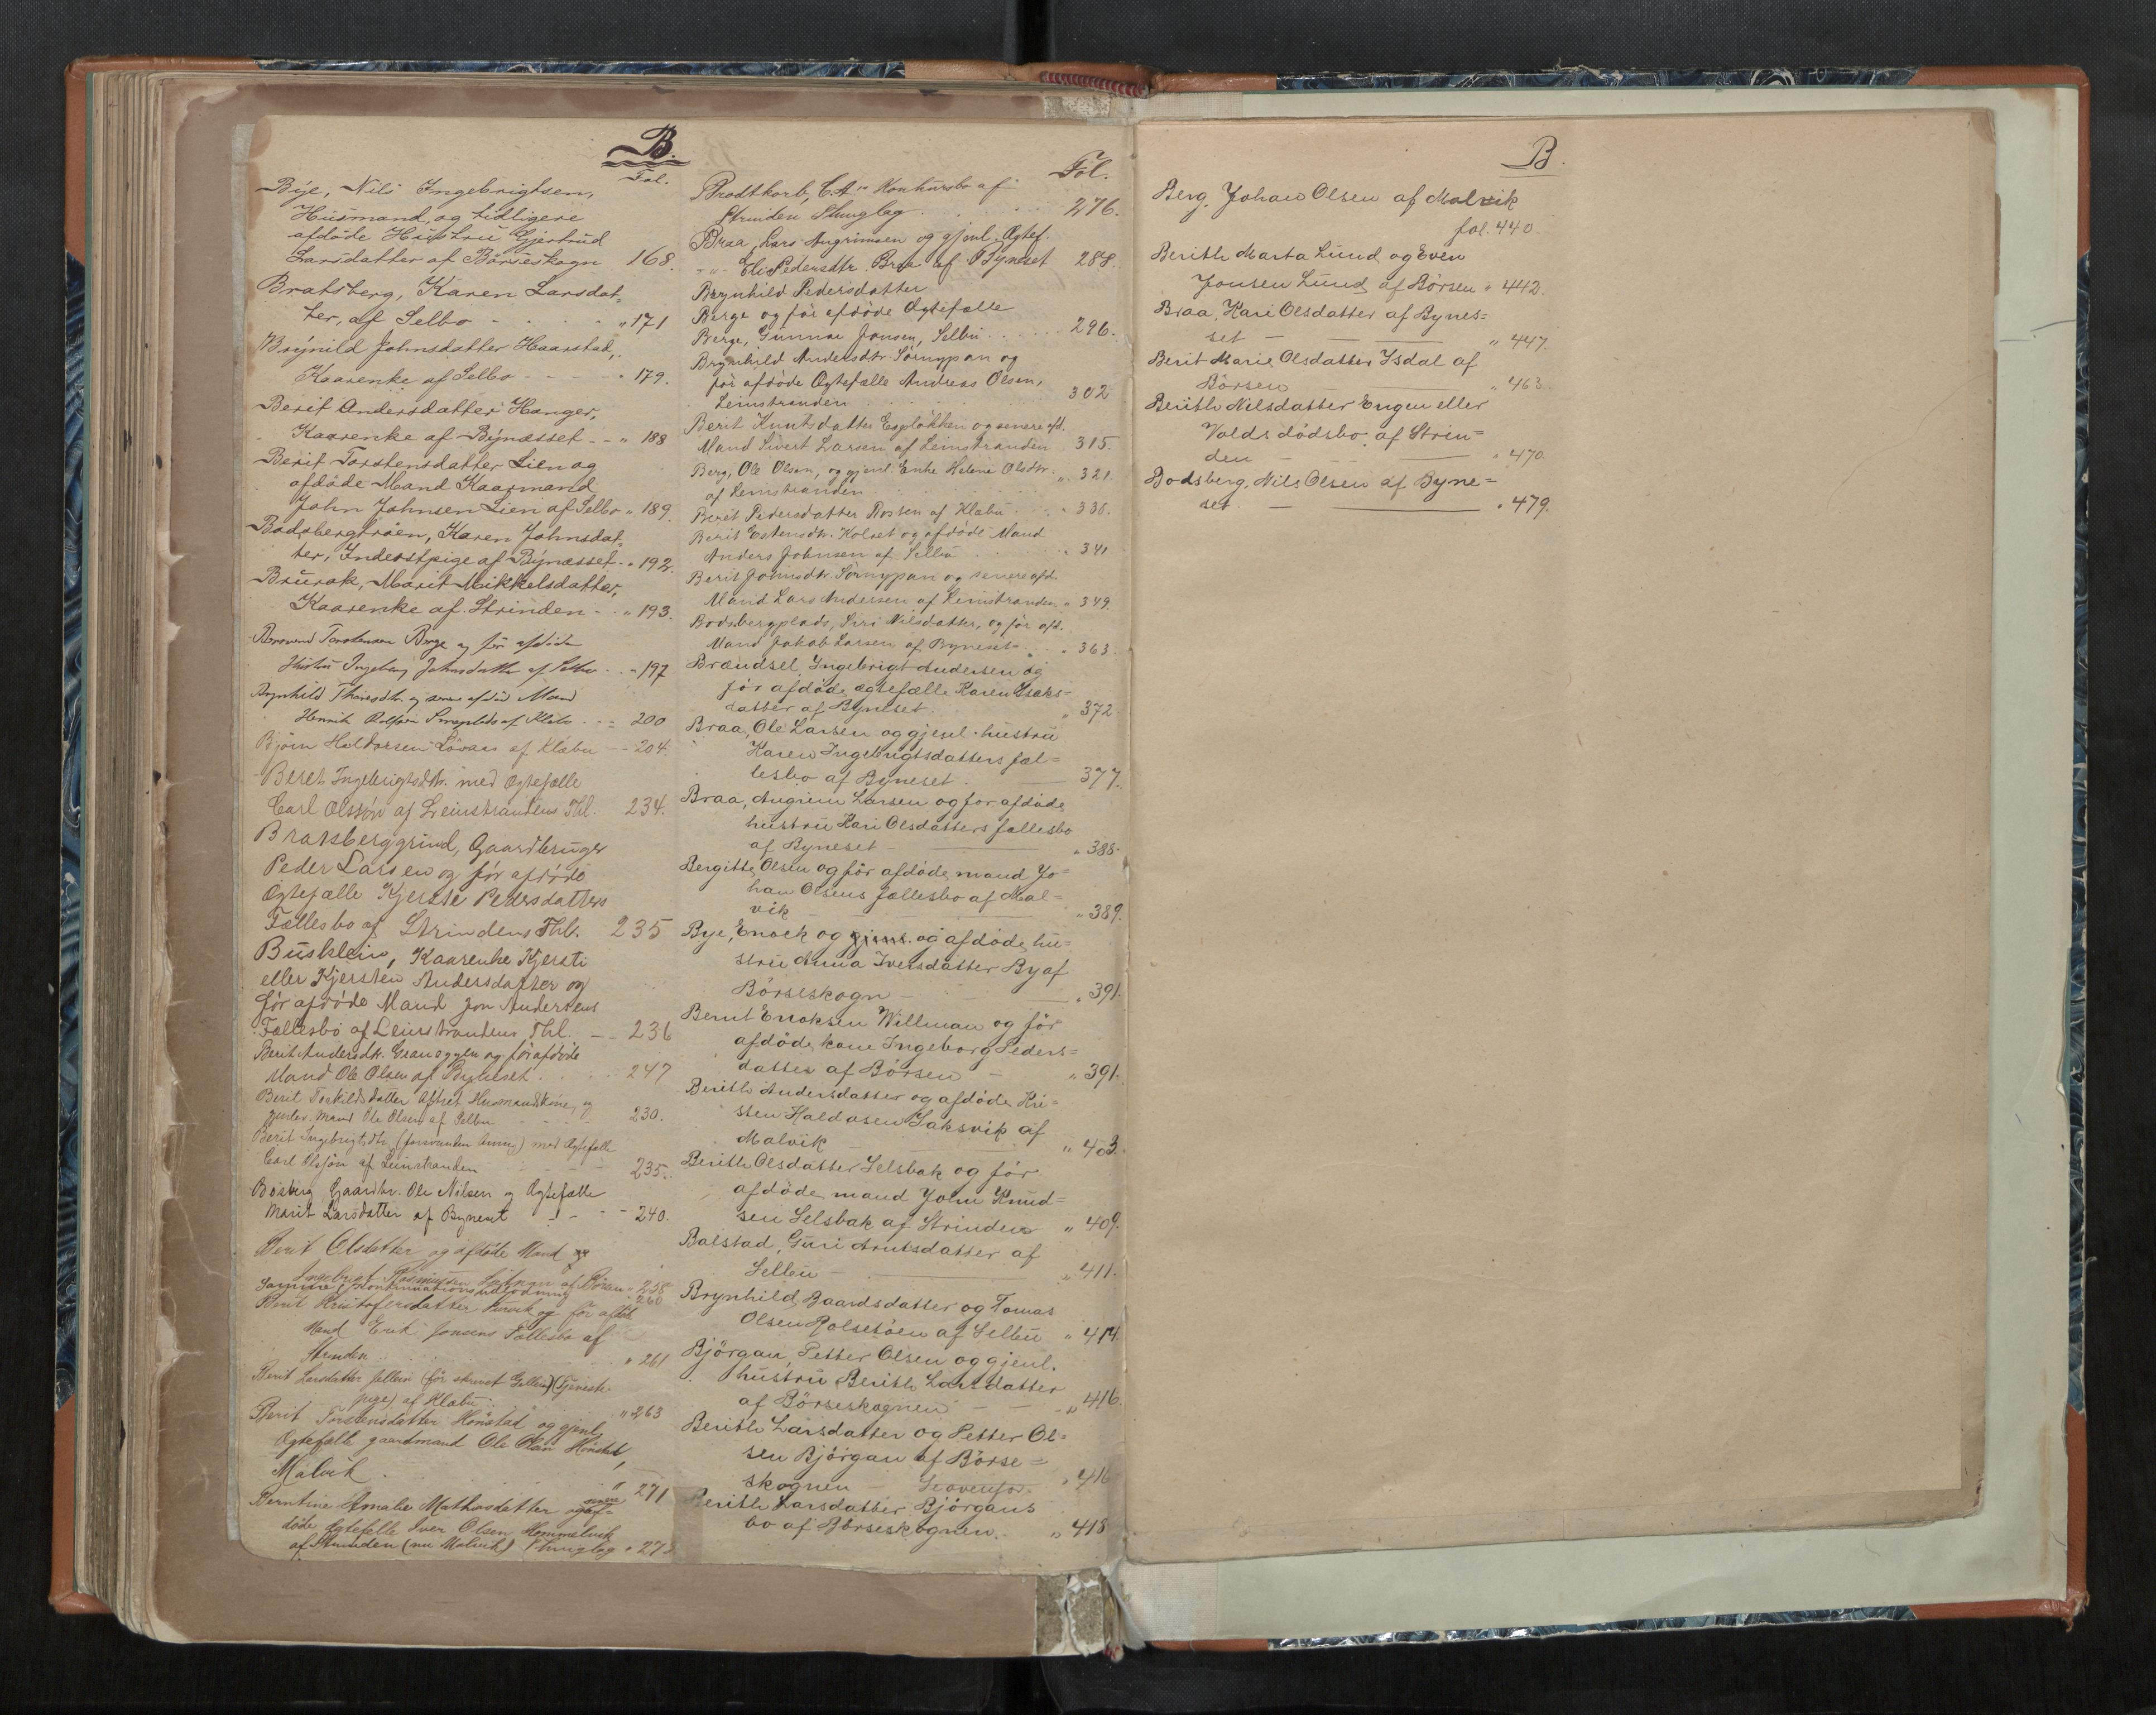 B.
Fol.
Bye, Nils Ingebrigtsen,
Husmand, og tidligere
afdöde Hustru Gjertrud
Larsdatter af Börseskogn 168.
Bratsberg, Karen Larsdat-
ter, af Selbo - - - - „ 171
Brynild Johnsdatter Haarstad,
Kaarenke af Selbo - - - „ 179.
Berit Andersdatter Hanger,
Kaarenke af Bynæsset - - „ 188
Berit Torstensdatter Lien og
afdöde Mand Kaarmand
John Johnsen Lien af Selbo „ 189.
Bodsbergtröen, Karen Johnsdat-
ter, Inderstpige af Bynæsset - „ 192.
Brurak, Marit Mikkelsdatter,
Kaarenke af Strinden - - „ 193.
Torstensen Berge og för afdöde
Hustru Ingeborg Johnsdatter af Selbo - - „ 197
Brynhild og senere afdöd Mand
Henrik af Klæbo - - - 200
Björn Haldorsen Lövaas af Klæbu - - 204.
Beret Ingebrigtsdtr. med Ægtefælle
Carl Olssön af Leinstrandens Thl. 234.
Bratsberggrind, Gaardbruger
Peder Larsen og för afdöde
Ægtefælle Kjerste Pedersdatters
Fællesbo af Strindens Thl. 235
Busklein, Kaarenke Kjersti
eller Kjersten Andersdatter og
för afdöde Mand Jon Andersens
Fællesbo af Leinstrandens Thl. - - 236
Berit Andersdtr. Granoggen og för afdöde
Mand Ole Olsen af Byneset. . . . 247
Berit Torkildsdatter Aftret Husmandskone, og
gjenlev. Mand Ole Olsen af Selbu - - - 230.
Berit Ingebrigtsdtr. med Ægtefælle
Carl Olssön af Leinstranden - - - 235.
Bosberg Gaardbr. Ole Nilsen og Ægtefælle
Marit Larsdatter af Byneset - - - 240.
Berit Olsdatter og afdöde Mand
Ingebrigt Rasmussen af Börsen „ 258
Samme 260
Berit Kristofersdatter og för afdöde
Mand Erik Jonsens Fællesbo af
Strinden . . . . „ 261
Berit Larsdatter (för skrevet Gellein) (Tjeneste-
pige) af Klæbu . . . „ 263
Berit Torstensdatter Hönstad og gjenl.
Ægtefælle gaardmand Ole Olsen Hönstad,
Malvik . . . „ 271
Berntine Amalie Mathisdatter og senere af-
döde Ægtefelle Iver Olsen Hommelvik
af Strinden (nu Malvik) Thinglag „ 273
Fol.
Brodtkorb, C.A.s Konkursbo af
Strinden Thinglag . . . . 276.
Braa, Lars Angrimsen og gjenl. Ægtef.
- „ - Eli Pedersdtr. Braa af Byneset 288.
Brynhild Pedersdatter
Berge og för afdöde Ægtefælle
Berge, Gunnar Jonsen, Selbu . . . . 296.
Brynhild Andersdtr. Sörnypan og
för afdöde Ægtefælle Andreas Olsen,
Leinstranden . . . . 302
Berit Knutsdatter Espløkken og senere afd.
Mand Sivert Larsen af Leinstranden 315.
Berg, Ole Olsen, og gjenl. Enke Helene Olsdtr.
af Leinstranden . . . . „ 321
Berit Pedersdatter Rosten af Klæbu . . „ 338.
Berit Estensdtr. Kolset og afdöde Mand
Anders Johnsen af Selbu . . . „ 341
Berit Johnsdtr. Sörnypan og senere afd.
Mand Lars Andersen af Leinstranden „ 349.
Bodsbergplads, Siri Nilsdatter, og för afd.
Mand Jakob Larsen af Byneset - „ 363
Brændsel, Ingebrigt Andersen og
för afdöde ægtefælle Karen Isaks=
datter af Byneset . „ 372
Braa, Ole Larsen og gjenl. hustru
Karen Ingebrigtsdatters fæl=
lesbo af Byneset . — 377.
Braa, Angrim Larsen og for afdöde
hustru Kari Olsdatters fællesbo
af Byneset — „ 388
Bergitte Olsen og för afdöde mand Jo=
han Olsens fællesbo af Mal=
vik — „ 389.
Bye, Enock og gjenl. og afdöde hu=
stru Anna Iversdatter By af
Börseskogn — „ 391.
Bernt Enoksen Willman og för
afdöde kone Ingeborg Peders=
datter af Börsen — „ 391.
Berith Andersdatter og afdöde Kri=
sten Haldosen Saksvik af
Malvik — „ 403.
Berith Olsdatter Selsbak og för
afdöde mand John Knud=
sen Selsbak af Strinden „ 409.
Balstad, Guri Arntsdatter af
Selbu — „ 411.
Brynhild Baardsdatter og Tomas
Olsen Rolsetöen af Selbu „ 414.
Björgan, Petter Olsen og gjenl.
hustru Berith Larsdatter
af Börseskognen — „ 416.
Berith Larsdatter og Petter Ol=
sen Björgan af Börse=
skognen - Se ovenfor. „ 416
Berith Larsdatter Björgans
bo af Börseskognen. „ 418
B.
Berg, Johan Olsen af Malvik
fol. 440.
Berith Marta Lund og Even
Jonsen Lund af Börsen „ 442.
Braa, Kari Olsdatter af Bynes=
set — — „ 447.
Berit Marie Olsdatter Isdal af
Börsen — „ 463.
Berith Nilsdatter Engen eller
Volds dödsbo af Strin=
den — — „ 470.
Bodsberg, Nils Olsen af Byne=
set — — „ 479.